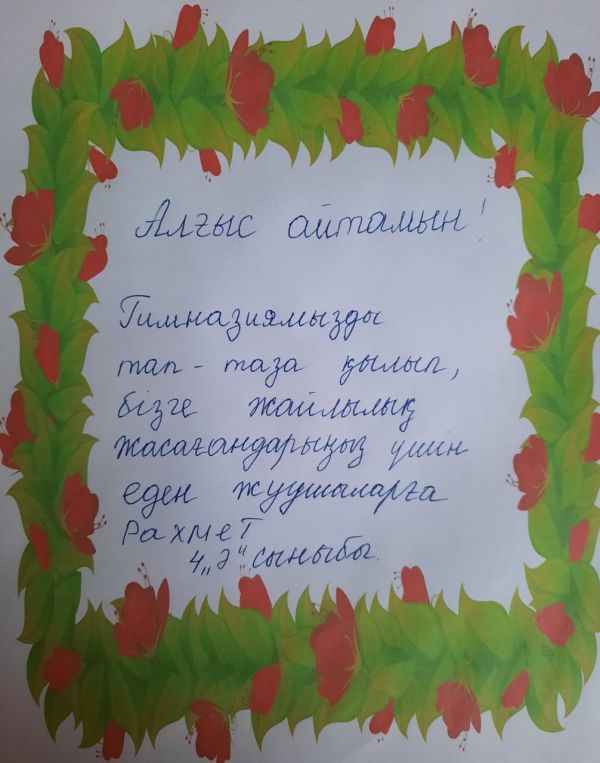 Алғыс айтамын!
Гимназиямызды
тап-таза қылып,
бізге жайлылық
жасағандарыңыз үшін
еден жуушыларға
Рахмет
4 „Ә" сыныбы.